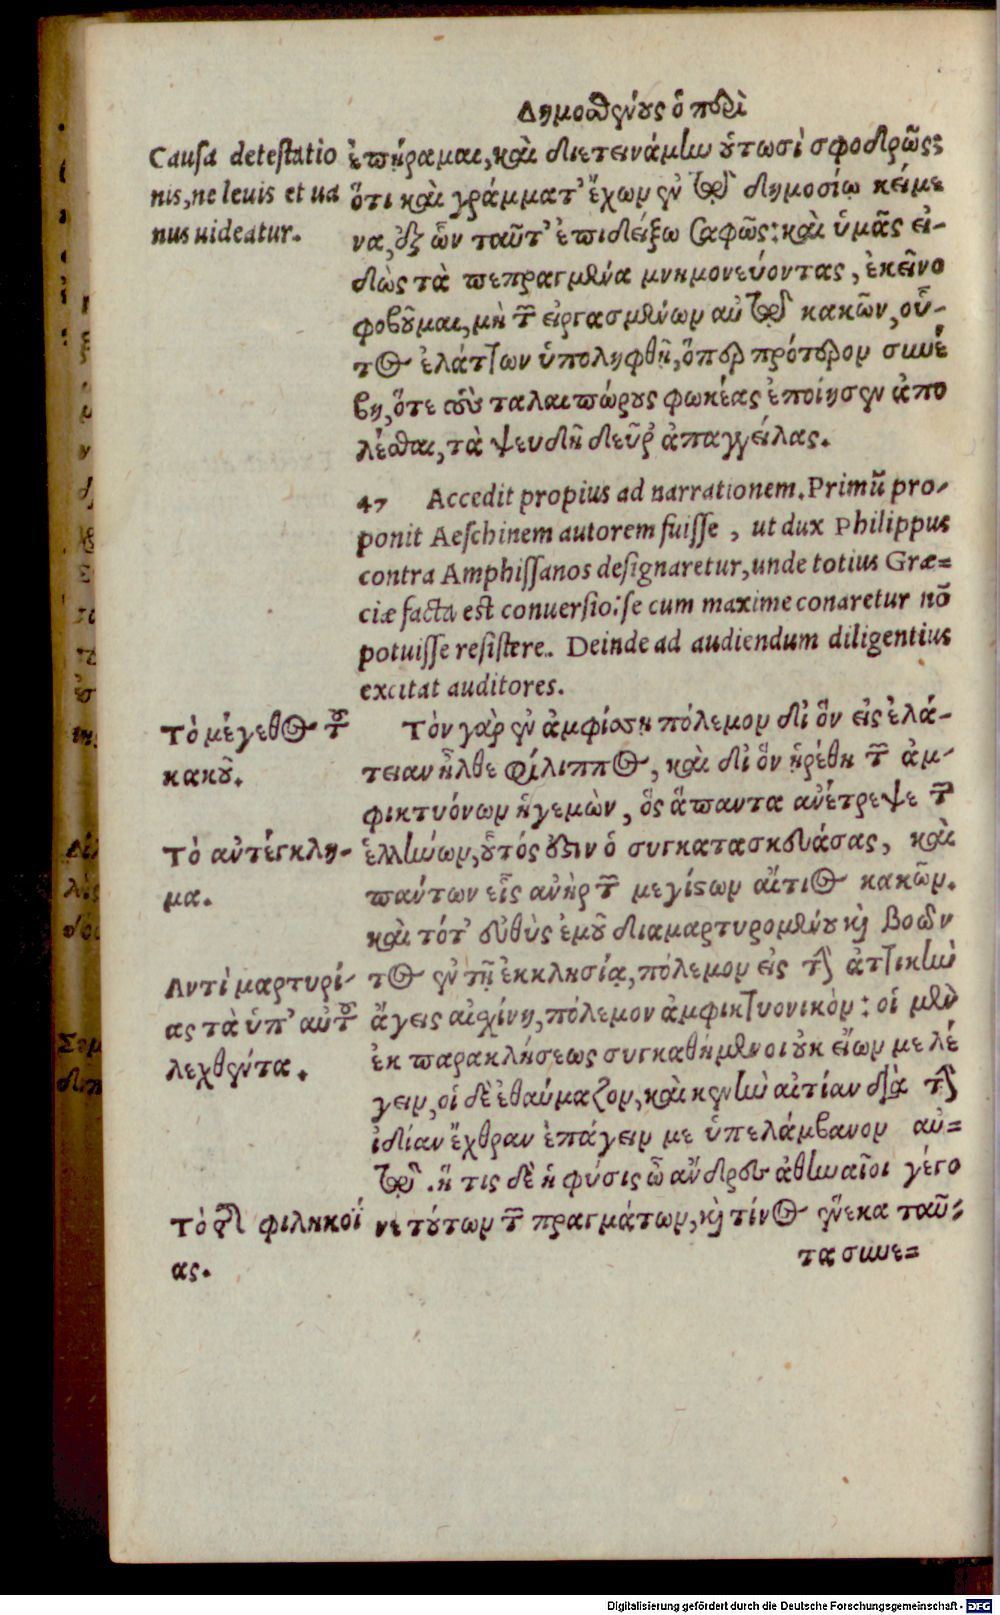 Δημοσθένους ὁ περὶ
Causa detestatio
nis, ne leuis et ua
nus uideatur.
ἐπήραμαι, καὶ διετεινάμην οὑτωσὶ σφοδρῶς;
ὅτι καὶ γράμματ' ἔχων ἐν τῷ δημοσίῳ κείμε
να, ἐξ ὧν ταῦτ' ἐπιδείξω σαφῶς: καὶ ὑμᾶς εἰ-
δὼς τὰ πεπραγμένα μνημονεύοντας, ἐκεῖνο
φοβοῦμαι, μὴ τῶν εἰργασμένων αὐτῷ κακῶν, οὗ-
τος ἐλάττων ὑποληφθῇ, ὅπερ πρότερον συνέ
βη, ὅτε τοὺς ταλαιπώρους φωκέας ἐποίησεν ἀπο
λέσθαι, τὰ ψευδῆ δεῦρ' ἀπαγγείλας.
47 Accedit propius ad narrationem. Primũ pro-
ponit Aeschinem autorem fuisse, ut dux Philippus
contra Amphissanos designaretur, unde totius Græ=
ciæ facta est conuersio: se cum maxime conaretur nõ
potuisse resistere. Deinde ad audiendum diligentius
excitat auditores.
Τὸ μέγεθος τοῦ
κακοῦ.
Τὸν γὰρ ἐν ἀμφίσσῃ πόλεμον δι' ὃν εἰς ἐλά-
τειαν ἦλθε φίλιππος, καὶ δι' ὃν ᾑρέθη τῶν ἀμ-
φικτυόνων ἡγεμὼν, ὃς ἅπαντα ἀνέτρεψε τῶν
Τὸ ἀντέγκλη-
μα.
ἑλλήνων, οὗτός ἐστιν ὁ συγκατασκευάσας, καὶ
πάντων εἷς ἀνὴρ τῶν μεγίστων αἴτιος κακῶν.
καὶ τότ' εὐθὺς ἐμοῦ διαμαρτυρομένου καὶ βοῶν
Αντὶ μαρτυρί-
ας τὰ ὑπ' αὐτοῦ
λεχθέντα.
τος ἐν τῇ ἐκκλησίᾳ, πόλεμον εἰς τὴν ἀττικὴν
ἄγεις αἰσχίνη, πόλεμον ἀμφικτυονικὸν: οἱ μὲν
ἐκ παρακλήσεως συγκαθήμενοι οὐκ εἴων με λέ
γειν, οἱ δὲ ἐθαύμαζον, καὶ κενὴν αἰτίαν διὰ τὴν
ἰδίαν ἔχθραν ἐπάγειν με ὑπελάμβανον αὐ=
τῷ. ἥ τις δὲ ἡ φύσις ὦ ἄνδρες ἀθηναῖοι γέγο
Τὸ τῆς φιληκοΐ
ας.
νε τούτων τῶν πραγμάτων, καὶ τίνος ἕνεκα ταῦ-
τα συνε=
Digitalisierung gefördert durch die Deutsche Forschungsgemeinschaft - DFG